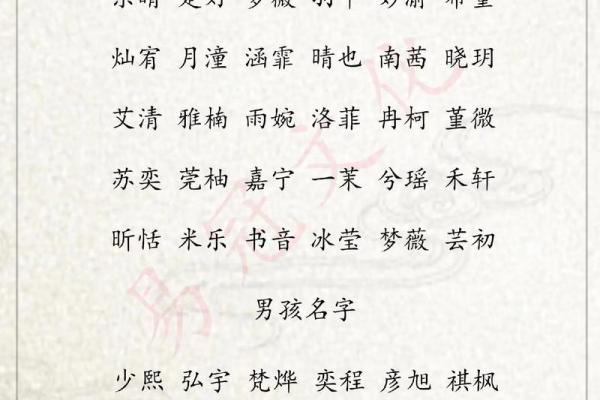 灿宥 月潼 涵霏 晴也 南茜 晓玥
艾清 雅楠 雨婉 洛菲 冉柯 堇微
苏奕 莞柚 嘉宁 一茉 兮瑶 禾轩
昕恬 米乐 书音 冰莹 梦薇 芸初
男孩名字
少熙 弘宇 梵烨 奕程 彦旭 祺枫
易冠文化